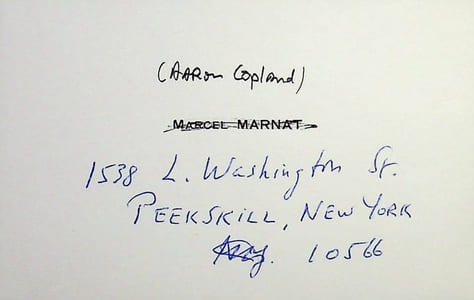 (AARON Copland)
MARCEL MARNAT
1538 L. Washington St.
PEEKSKILL, NEW YORK
10566